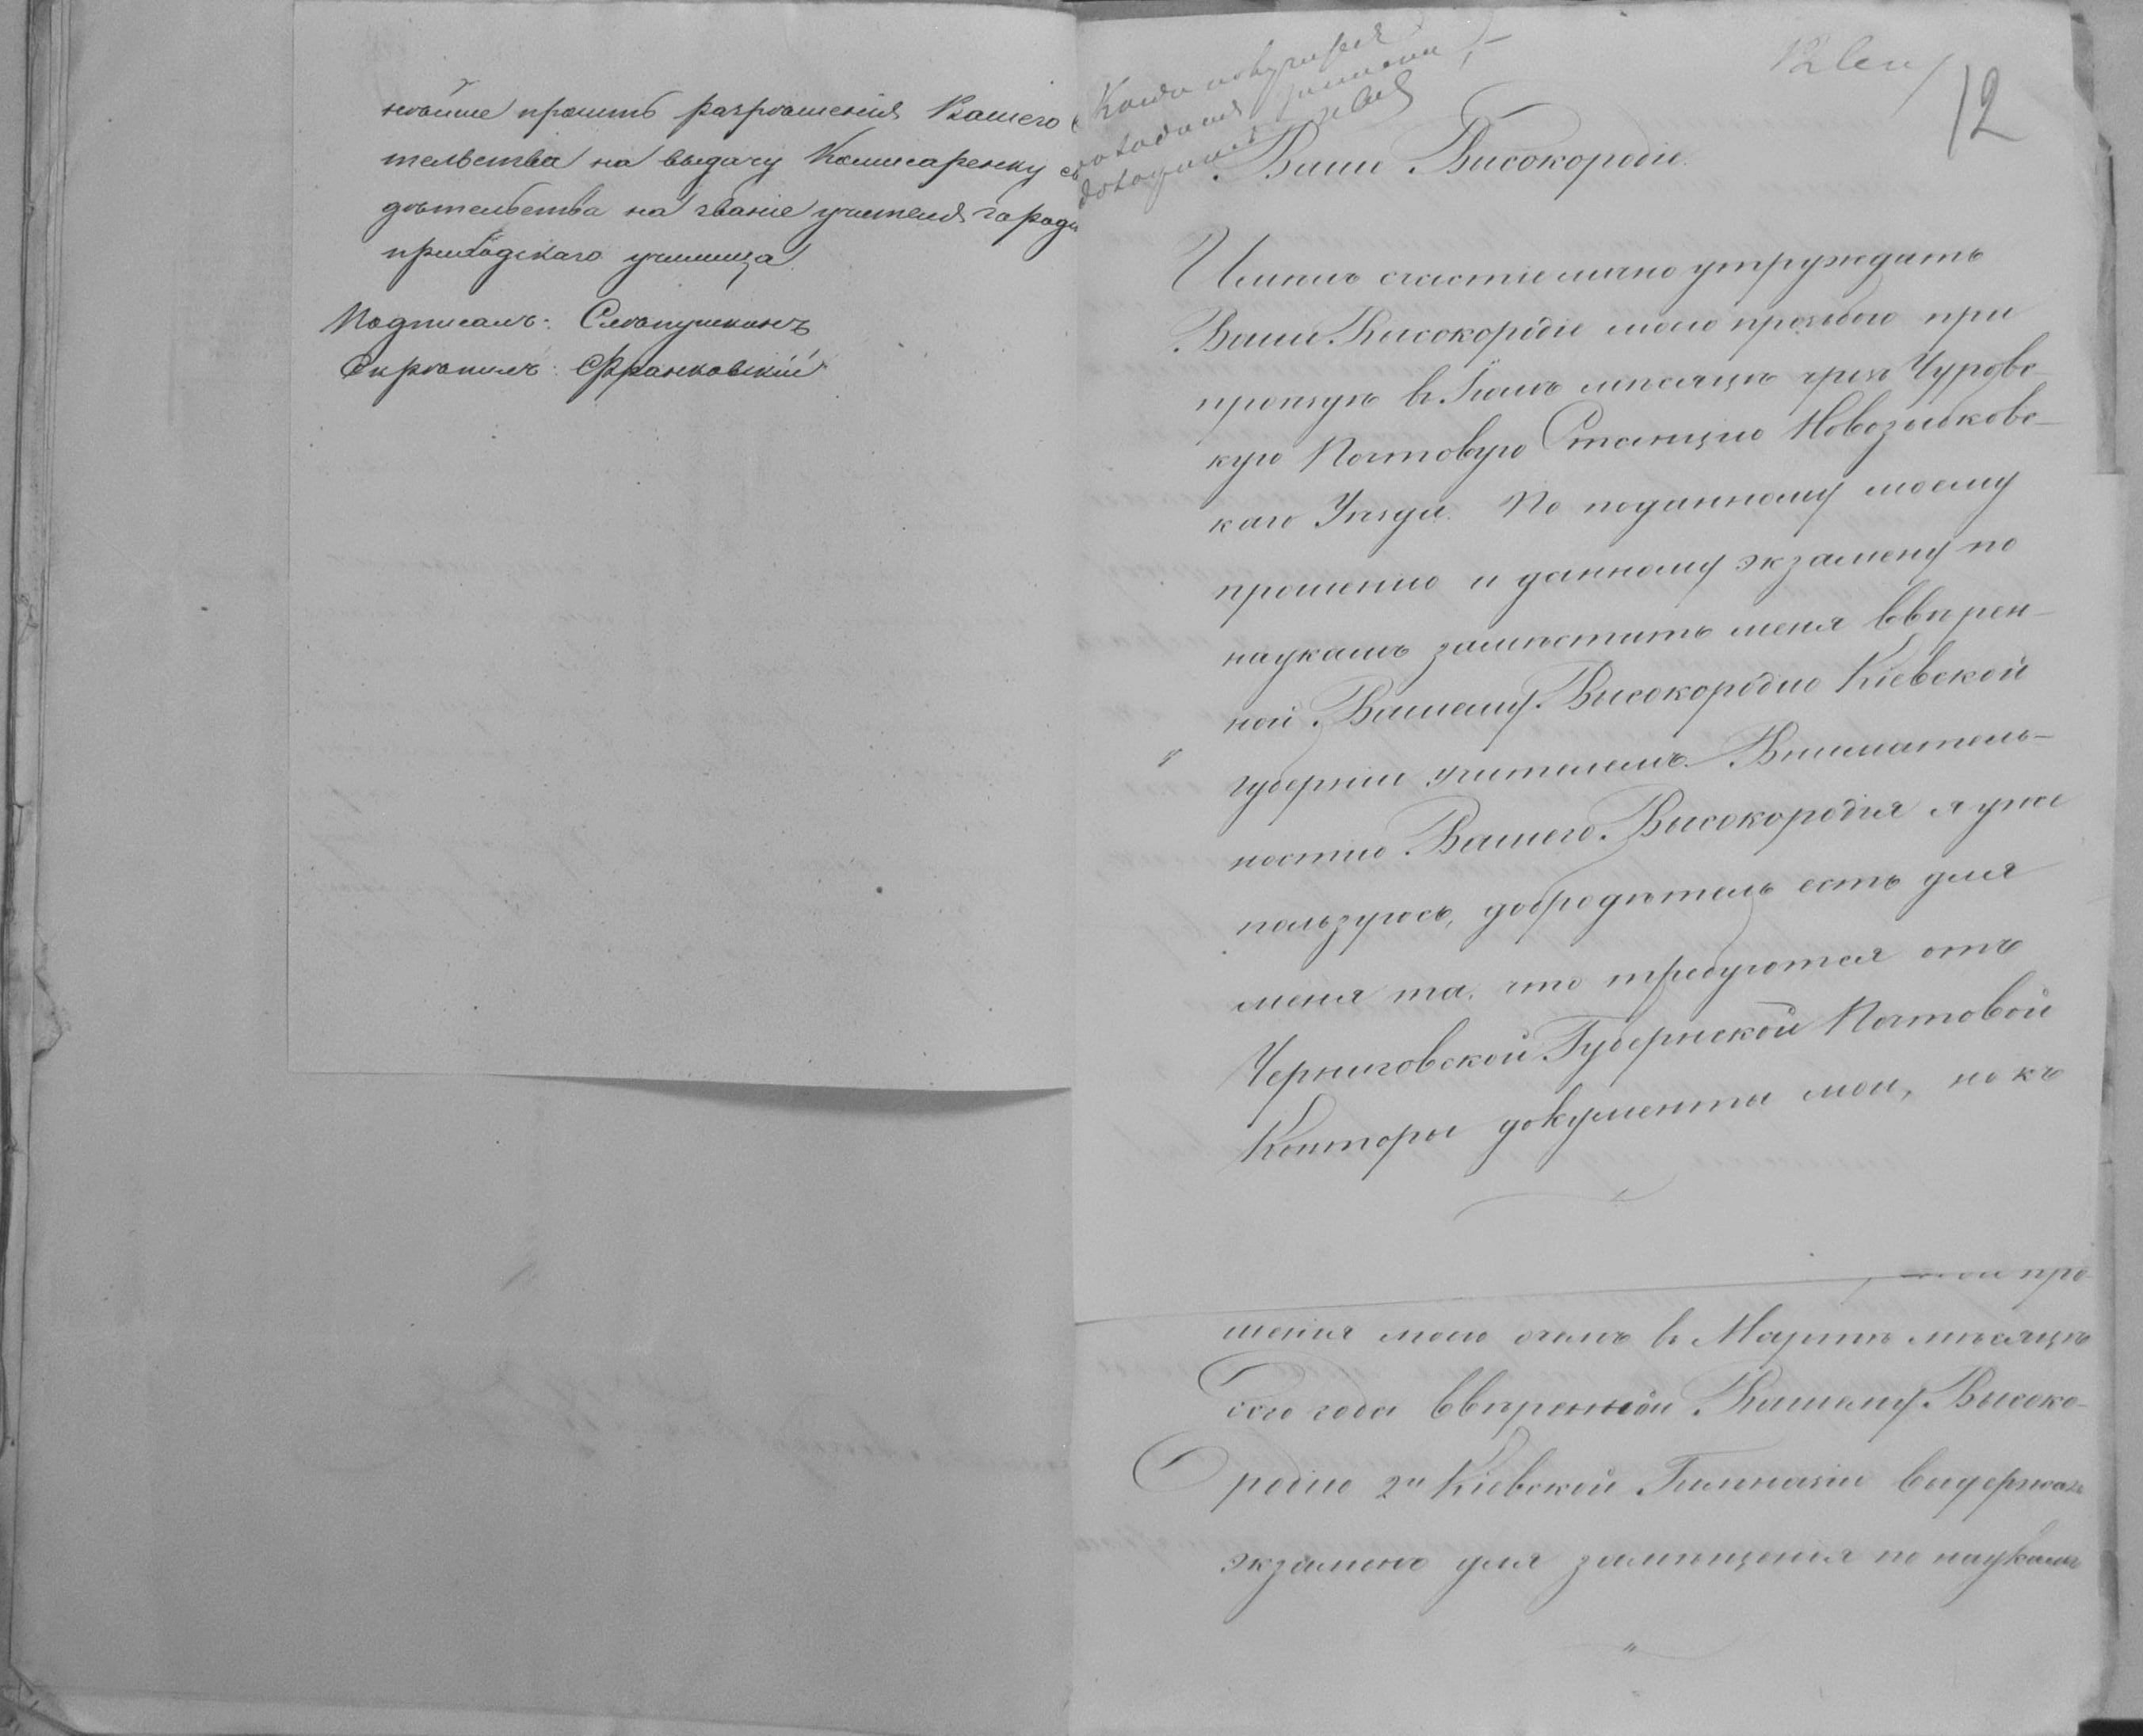 нѣйше просить разрѣшенія Вашего
тельства на выдачу Комисаренку св
дѣтельства на званіе учителя городс
приходскаго училища.
Подписалъ: Слѣпушкинъ
Скрѣпилъ: Франковскій
12
Ваше Высокородіе.
Имѣлъ счастіе лично утруждать
Ваше Высокородіе моею прозьбою при
проѣздѣ в Іюнѣ мѣсяцѣ чрезъ Чуровс-
кую Почтовую Станцію Новозыбковс-
каго Уѣзда. По поданному моему
прошенію и данному экзамену по
наукамъ замѣстить меня ввѣрен-
ной Вашему Высокородію Кіевской
губерніи учителемъ. Вниматель-
ностію Вашего Высокородія я уже
пользуюсь, добродѣтель есть для
меня та, что требуются отъ
Черниговской Губернской Почтовой
Конторы документы мои, но къ
про-
шенія моего очемъ в Мартѣ мѣсяцѣ
сего года ввѣренной Вашему Высоко-
родію 2й Кіевской Гимназіи выдержалъ
экзаменъ для замѣщенія по наукамъ